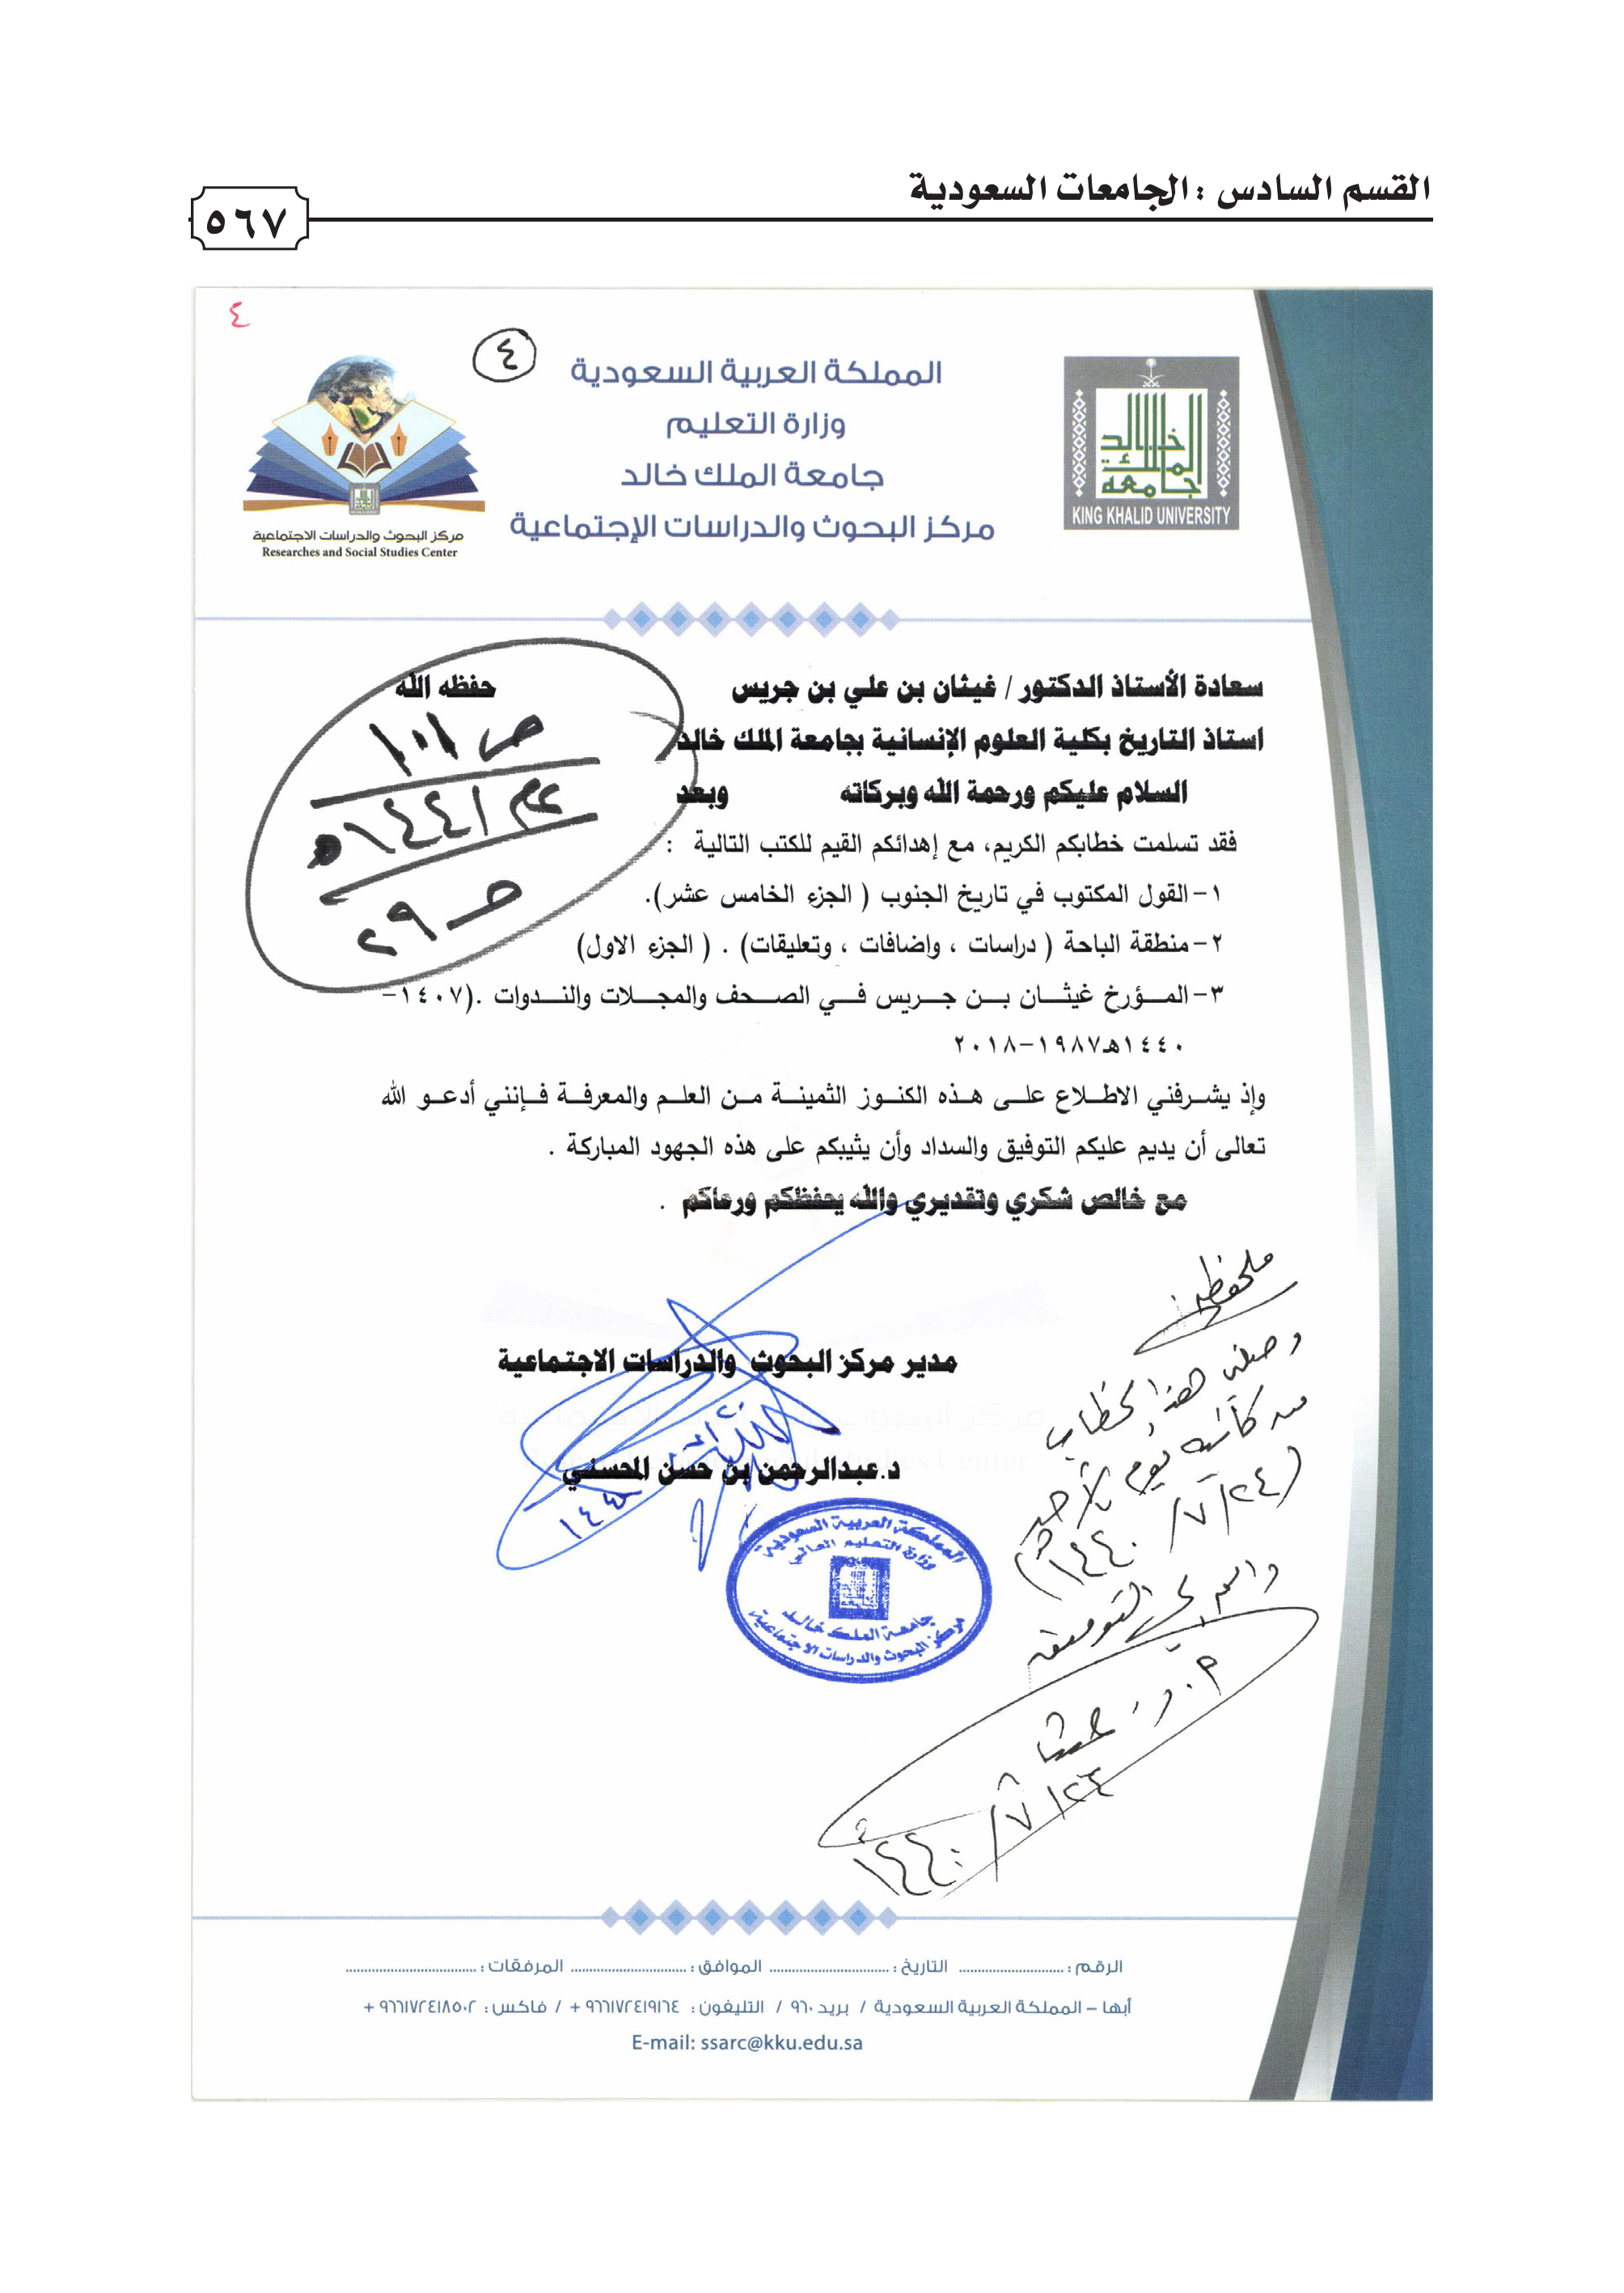 القسم السادس : الجامعات السعودية
٥٦٧
٤
٤
المملكة العربية السعودية
وزارة التعليم
جامعة الملك خالد
مركز البحوث والدراسات الإجتماعية
جامعة الملك خالد
KING KHALID UNIVERSITY
مركز البحوث والدراسات الاجتماعية
Researches and Social Studies Center
سعادة الأستاذ الدكتور / غيثان بن علي بن جريس حفظه الله
استاذ التاريخ بكلية العلوم الإنسانية بجامعة الملك خالد
السلام عليكم ورحمة الله وبركاته وبعد
فقد تسلمت خطابكم الكريم، مع إهدائكم القيم للكتب التالية :
١- القول المكتوب في تاريخ الجنوب ( الجزء الخامس عشر).
٢- منطقة الباحة ( دراسات ، واضافات ، وتعليقات) . ( الجزء الاول)
٣- المؤرخ غيثان بن جريس في الصحف والمجلات والندوات .(١٤٠٧-
١٤٤٠هـ١٩٨٧-٢٠١٨
وإذ يشرفني الاطلاع على هذه الكنوز الثمينة من العلم والمعرفة فإنني أدعو الله
تعالى أن يديم عليكم التوفيق والسداد وأن يثيبكم على هذه الجهود المباركة .
مع خالص شكري وتقديري والله يحفظكم ورعاكم .
ص ١٠١
عام ١٤٤١هـ
ص ٢٩
مدير مركز البحوث والدراسات الاجتماعية
د.عبدالرحمن بن حسن المحسني
المملكة العربية السعودية
وزارة التعليم العالي
جامعة الملك خالد
مركز البحوث والدراسات الاجتماعية
وصلني هذا الخطاب
من كاتبه يوم الأحد
(٢٤/ ٧/ ١٤٤٠هـ)
والله ولي التوفيق
الرقم : التاريخ : الموافق : المرفقات :
أبها – المملكة العربية السعودية / بريد ٩٦٠ / التليفون : ٩٦٦١٧٢٤١٩١٦٤ + / فاكس : ٩٦٦١٧٢٤١٨٥٠٢ +
E-mail: ssarc@kku.edu.sa